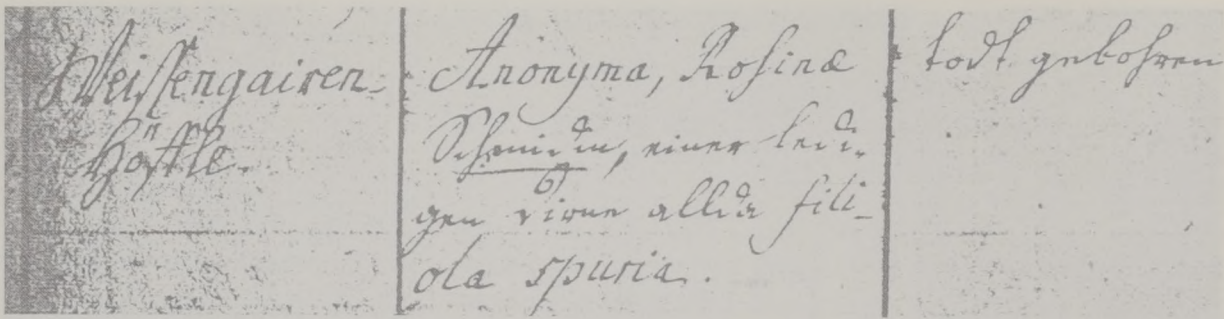 Weissengairen-
Höffle.
Anonyma, Rosinæ
Schmidin, einer ledi-
gen Dirne allda fili-
ola spuria.
todt gebohren